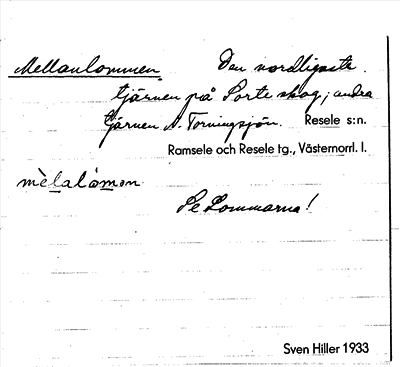 Mellanlommen, Den nordligaste
tjärnen på Porteskog; andra
tjärnen N. Torningsjön. Resele s:n.
Ramsele och Resele tg., Västernorrl. l.
mèlalòmən
Se Lommarna!
Sven Hiller 1933